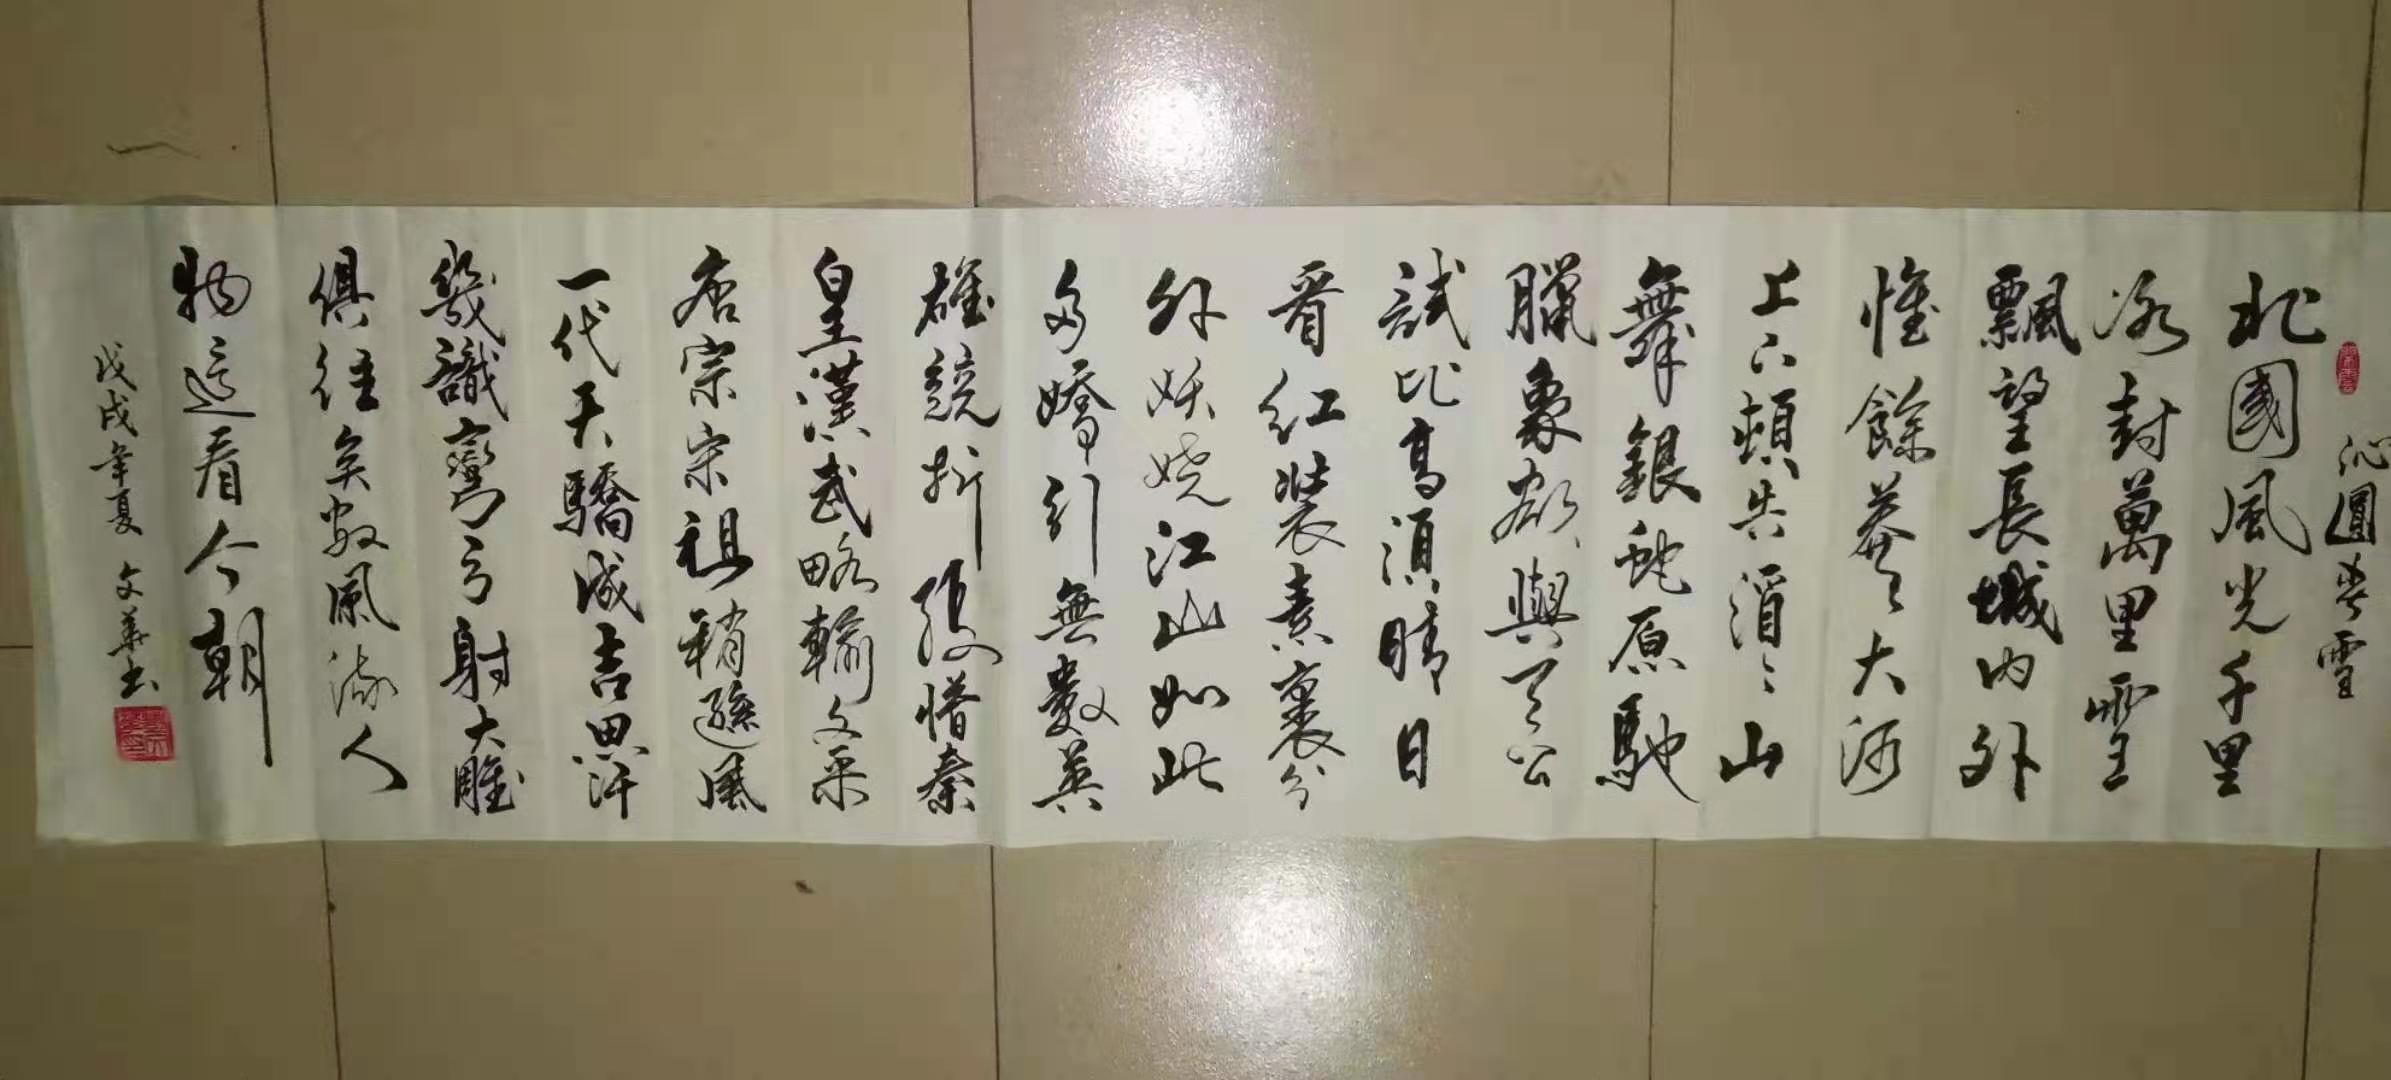 沁圓春雪
北國風光千里
冰封萬里雪
飄望長城内外
惟餘莽〻大河
上下頓失滔〻山
舞銀蛇原馳
臘象欲與天公
試比高須晴日
看红裝素裹分
外妖嬈江山如此
多嬌引無數英
雄競折腰惜秦
皇漢武略輸文采
唐宗宋祖稍遜風
一代天驕成吉思汗
幾識彎弓射大雕
俱往矣數風流人
物還看今朝
戊戌年夏 文華书